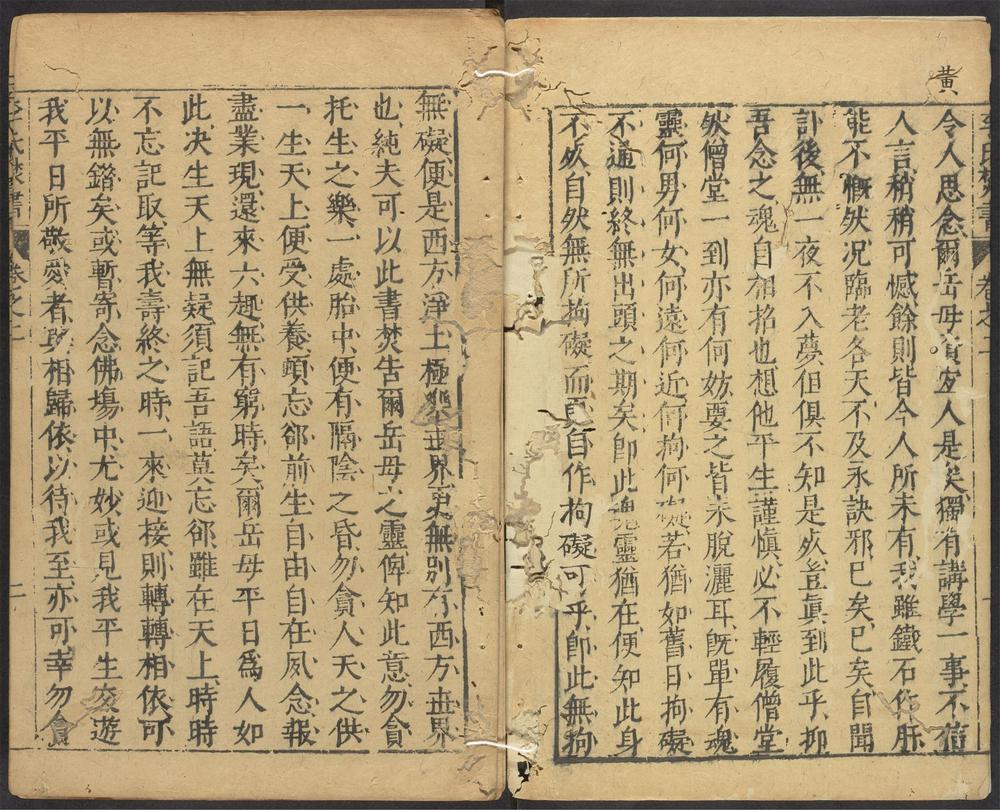 黄
李氏焚書 卷之二 一
令人思念爾岳母黃宜人是矣獨有講學一事不信
人言稍稍可憾餘則皆今人所未有我雖鐵石作肝
能不慨然况臨老各天不及永訣邪已矣已矣自聞
訃後無一夜不入夢但俱不知是死豈真到此乎抑
吾念之魂自相招也想他平生謹慎必不輕履僧堂
然僧堂一到亦有何妨要之皆未脫灑耳既單有魂
靈何男何女何遠何近何拘何礙若猶如舊日拘礙
不通則終無出頭之期矣卽此魂靈猶在便知此身
不死自然無所拘礙而更自作拘礙可乎卽此無拘
無礙便是西方淨土極樂世界更無別有西方世界
也純夫可以此書焚告爾岳母之靈俾知此意勿貪
托生之樂一處胎中便有隔陰之昏勿貪人天之供
一生天上便受供養頓忘郤前生自由自在夙念報
盡業現還來六趣無有窮時矣爾岳母平日爲人如
此决生天上無疑須記吾語莫忘郤雖在天上時時
不忘記取等我壽終之時一來迎接則轉轉相依可
以無錯矣或暫寄念佛塲中尤妙或見我平生交遊
我平日所敬愛者與相歸依以待我至亦可幸勿貪
李氏焚書 卷之二 二